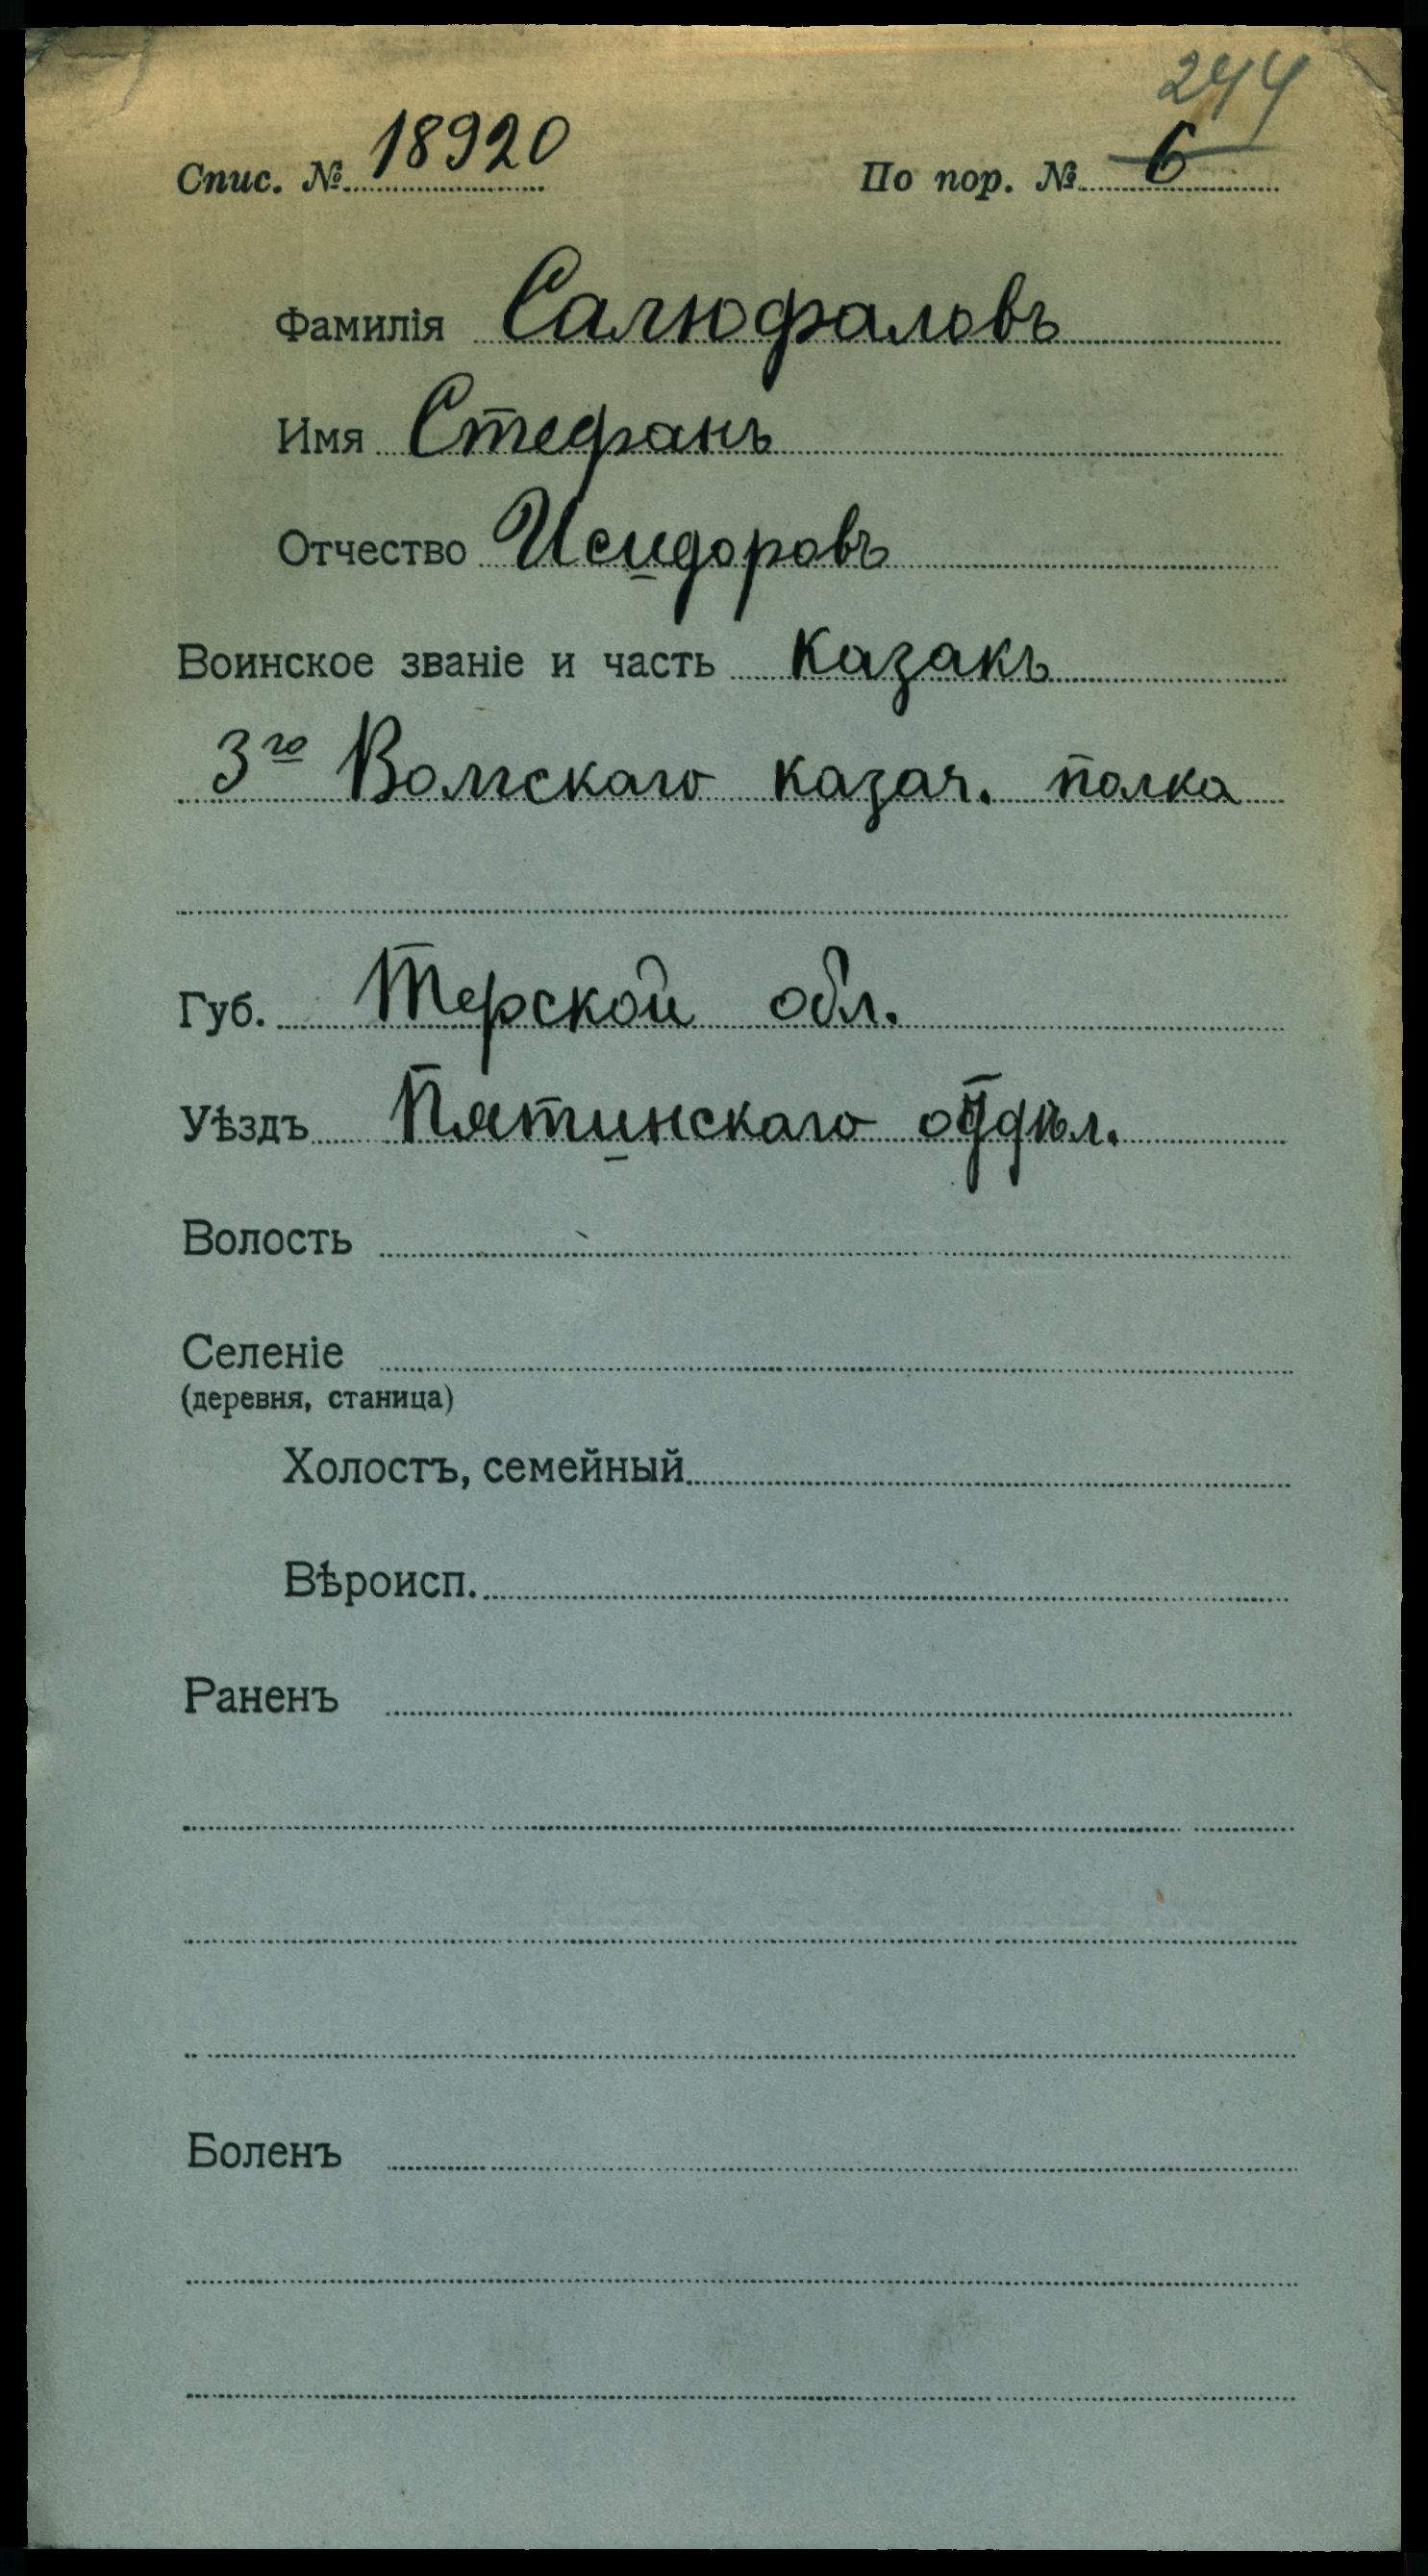 244
Спис. № 18920 По пор. № 6
Фамилія Салюфаловъ
Имя Стефанъ
Отчество Исидоровъ
Воинское званіе и часть Казакъ
3го Волгскаго казач. полка
Губ. Терской обл.
Уѣздъ Пятинскаго отдѣл.
Волость
Селеніе
(деревня, станица)
Холостъ, семейный
Вѣроисп.
Раненъ
Боленъ